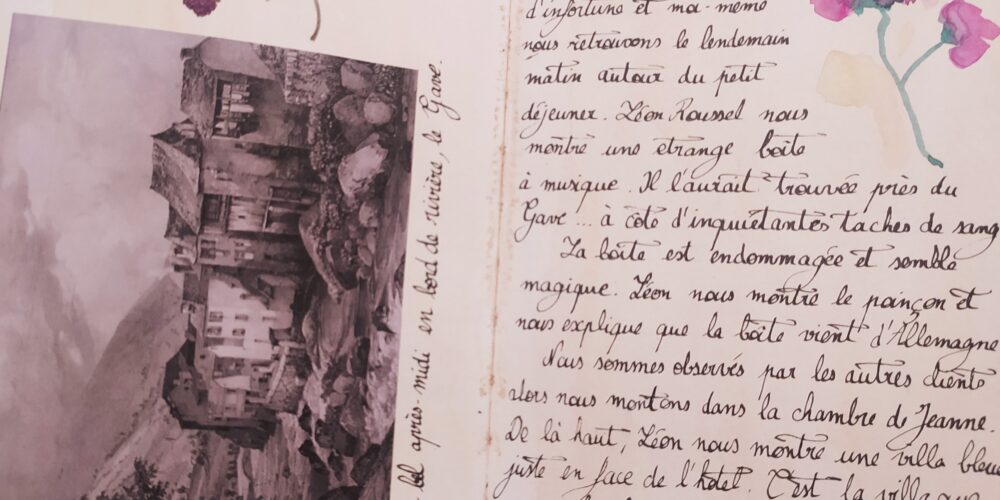 bel après-midi en bord de rivière, le Gave.
d'infortune et moi-même
nous retrouvons le lendemain
matin autour du petit
déjeuner. Léon Roussel nous
montre une étrange boîte
à musique. Il l'aurait trouvée près du
Gave ... à côté d'inquiétantes taches de sang
La boîte est endommagée et semble
magique. Léon nous montre le poinçon et
nous explique que la boîte vient d'Allemagne
Nous sommes observés par les autres clients
alors nous montons dans la chambre de Jeanne.
De là haut, Léon nous montre une villa bleue
juste en face de l'hotel. C'est la villa que